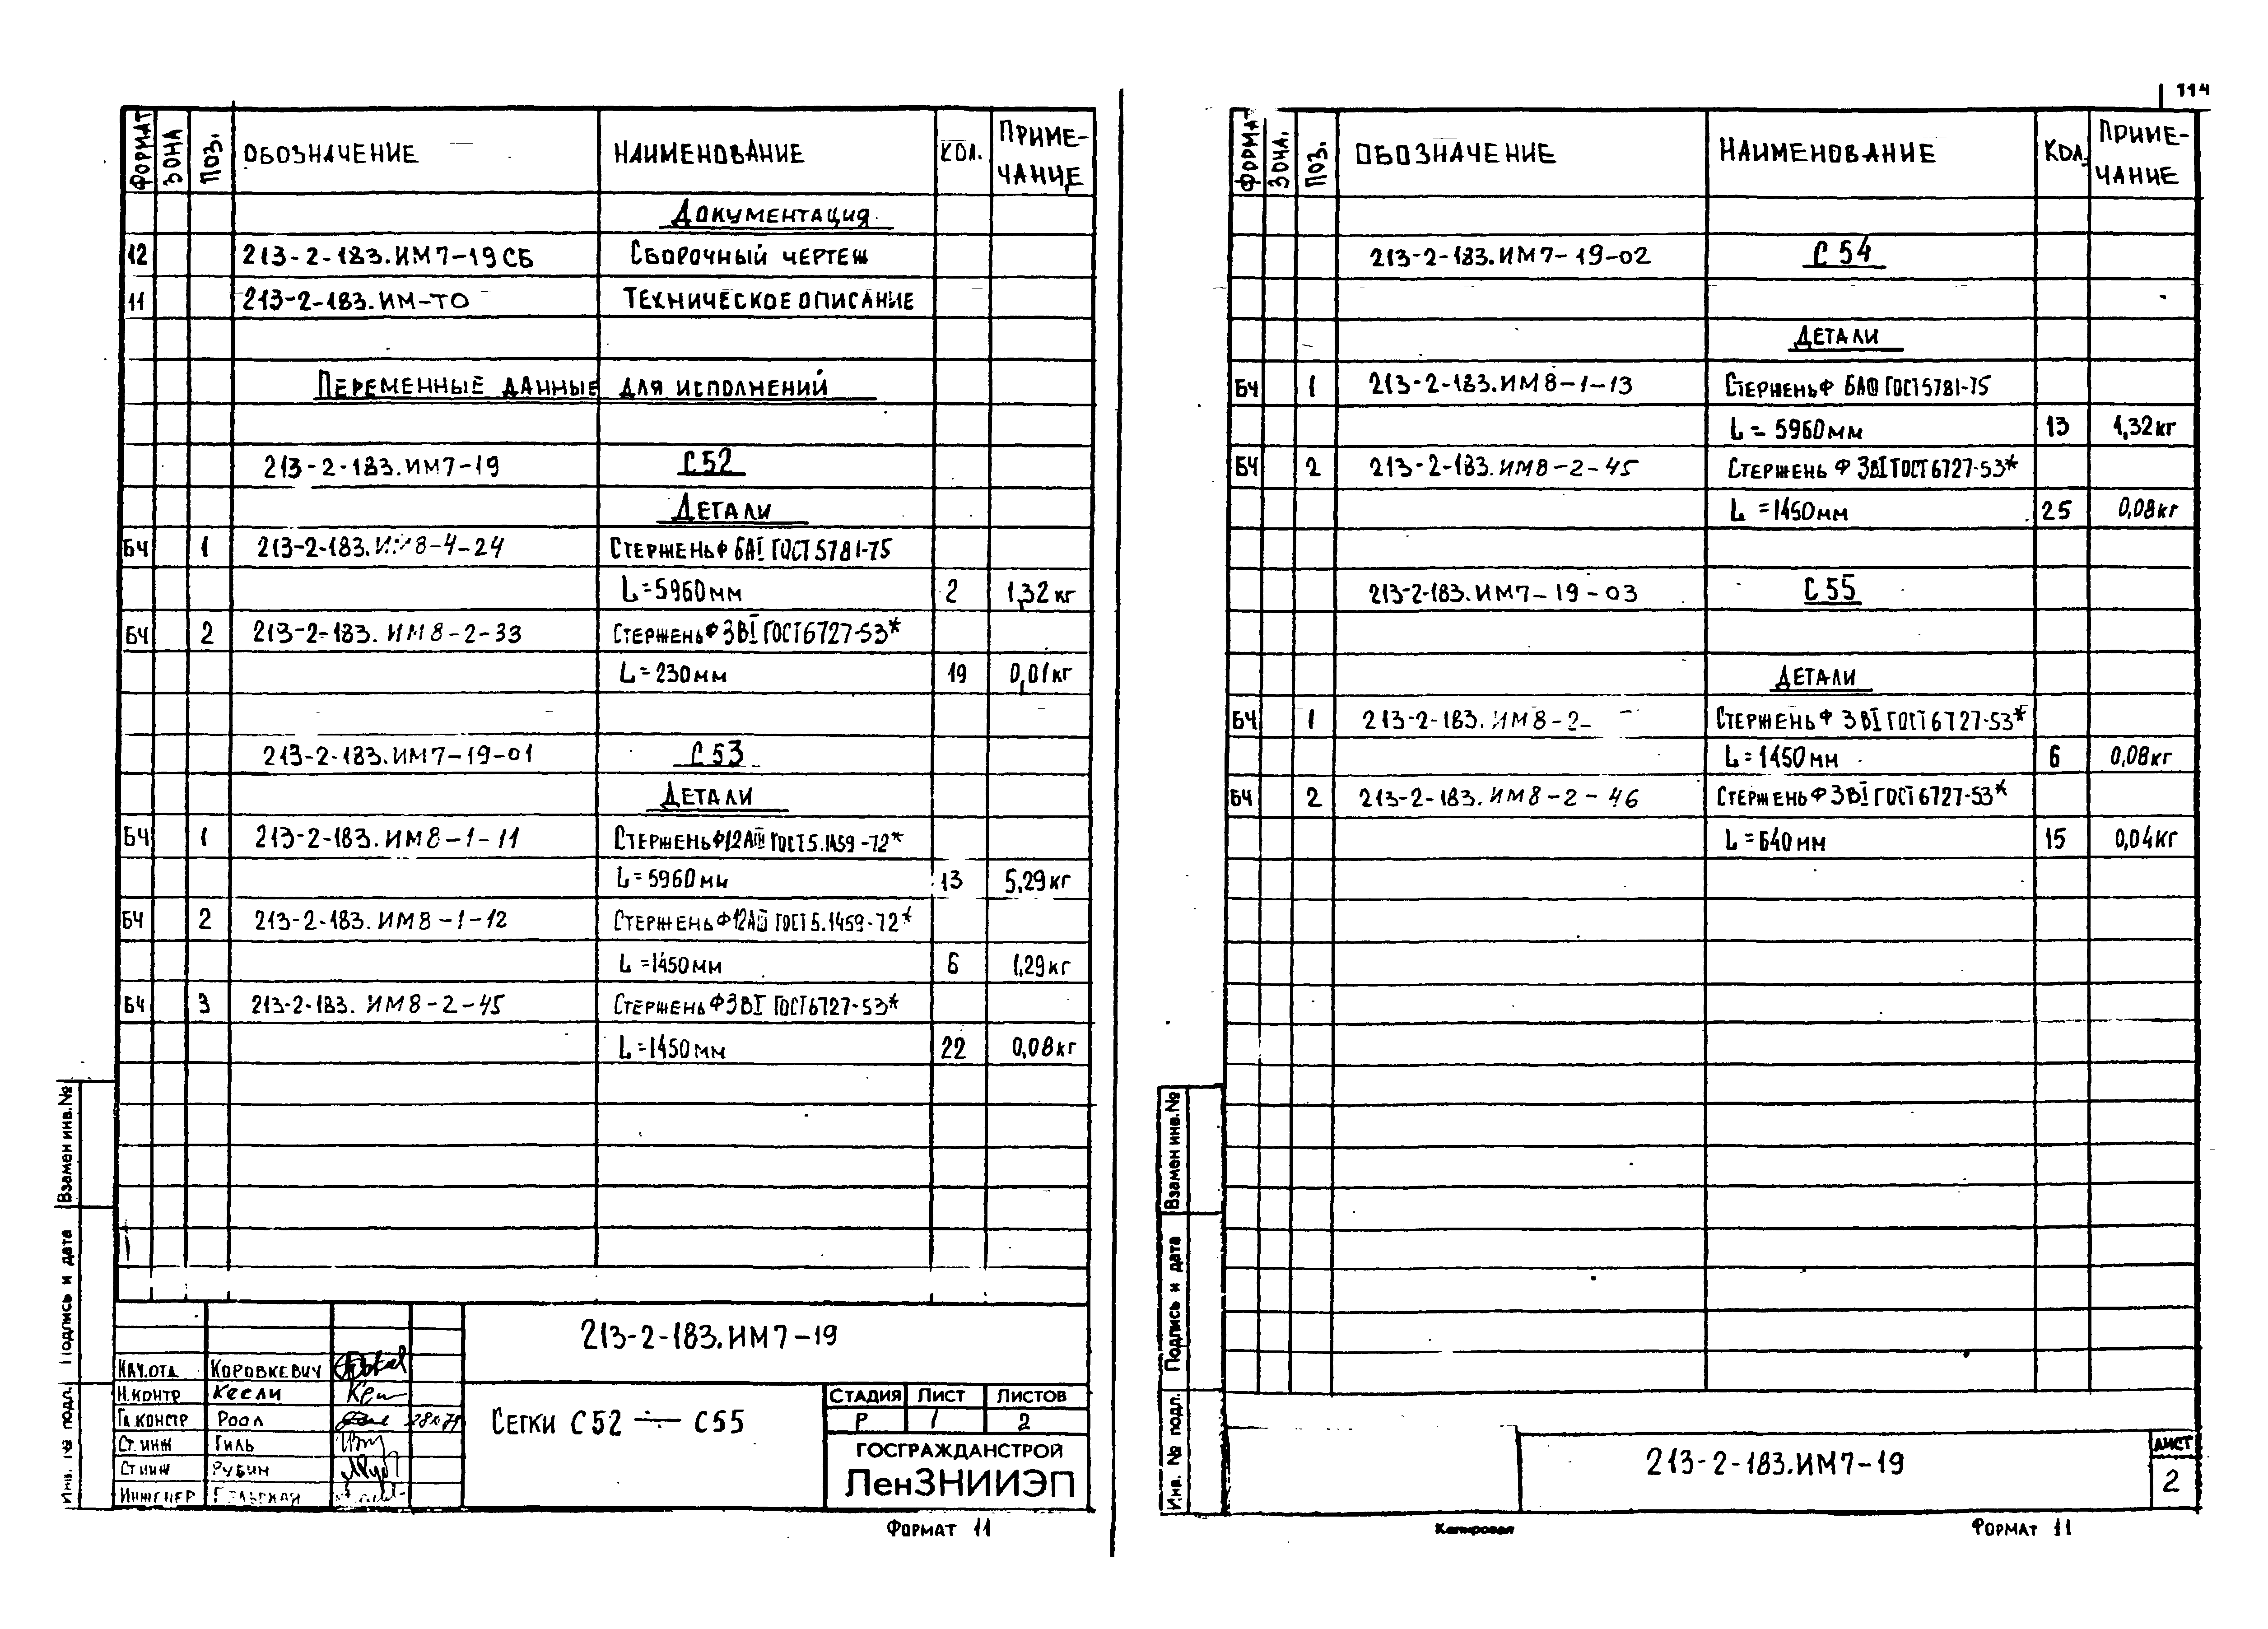 114
ФОРМАТ ЗОНА ПОЗ. ОБОЗНАЧЕНИЕ НАИМЕНОВАНИЕ КОЛ. ПРИМЕ-
ЧАНИЕ
ДОКУМЕНТАЦИЯ
12 213-2-183.ИМ7-19СБ СБОРОЧНЫЙ ЧЕРТЕЖ
11 213-2-183.ИМ-ТО ТЕХНИЧЕСКОЕ ОПИСАНИЕ
ПЕРЕМЕННЫЕ ДАННЫЕ ДЛЯ ИСПОЛНЕНИЙ
213-2-183.ИМ7-19 С52
ДЕТАЛИ
БЧ 1 213-2-183.ИМ8-4-24 СТЕРЖЕНЬ Ф 6АI ГОСТ 5781-75
L=5960мм 2 1,32кг
БЧ 2 213-2-183.ИМ8-2-33 СТЕРЖЕНЬ Ф 3ВI ГОСТ 6727-53*
L=230мм 19 0,01кг
213-2-183.ИМ7-19-01 С53
ДЕТАЛИ
БЧ 1 213-2-183.ИМ8-1-11 СТЕРЖЕНЬ Ф12АIII ГОСТ 5.1459-72*
L=5960мм 13 5,29кг
БЧ 2 213-2-183.ИМ8-1-12 СТЕРЖЕНЬ Ф12АIII ГОСТ 5.1459-72*
L=1450мм 6 1,29кг
БЧ 3 213-2-183.ИМ8-2-45 СТЕРЖЕНЬ Ф3ВI ГОСТ 6727-53*
L=1450мм 22 0,08кг
Взамен инв.№
Подпись и дата
Инв. № подл.
213-2-183.ИМ7-19
НАЧ.ОТД КОРОВКЕВИЧ
Н.КОНТР КЕСЛИ
ГЛ.КОНСТР РООЛ
СТ.ИНЖ ГИЛЬ
СТ.ИНЖ РУБИН
ИНЖЕНЕР
СЕТКИ С52 ÷ С55
СТАДИЯ ЛИСТ ЛИСТОВ
Р 1 2
ГОСГРАЖДАНСТРОЙ
ЛенЗНИИЭП
ФОРМАТ 11
ФОРМАТ ЗОНА. ПОЗ. ОБОЗНАЧЕНИЕ НАИМЕНОВАНИЕ КОЛ. ПРИМЕ-
ЧАНИЕ
213-2-183.ИМ7-19-02 С54
ДЕТАЛИ
БЧ 1 213-2-183.ИМ8-1-13 СТЕРЖЕНЬ Ф 6АIII ГОСТ 5781-75
L=5960мм 13 1,32кг
БЧ 2 213-2-183.ИМ8-2-45 СТЕРЖЕНЬ Ф 3ВI ГОСТ 6727-53*
L=1450мм 25 0,08кг
213-2-183.ИМ7-19-03 С55
ДЕТАЛИ
БЧ 1 213-2-183.ИМ8-2- СТЕРЖЕНЬ Ф 3ВI ГОСТ 6727-53*
L=1450мм 6 0,08кг
БЧ 2 213-2-183.ИМ8-2-46 СТЕРЖЕНЬ Ф 3ВI ГОСТ 6727-53*
L=640мм 15 0,04кг
Взамен инв.№
Подпись и дата
Инв. № подл.
213-2-183.ИМ7-19
ЛИСТ
2
Копировал
ФОРМАТ 11